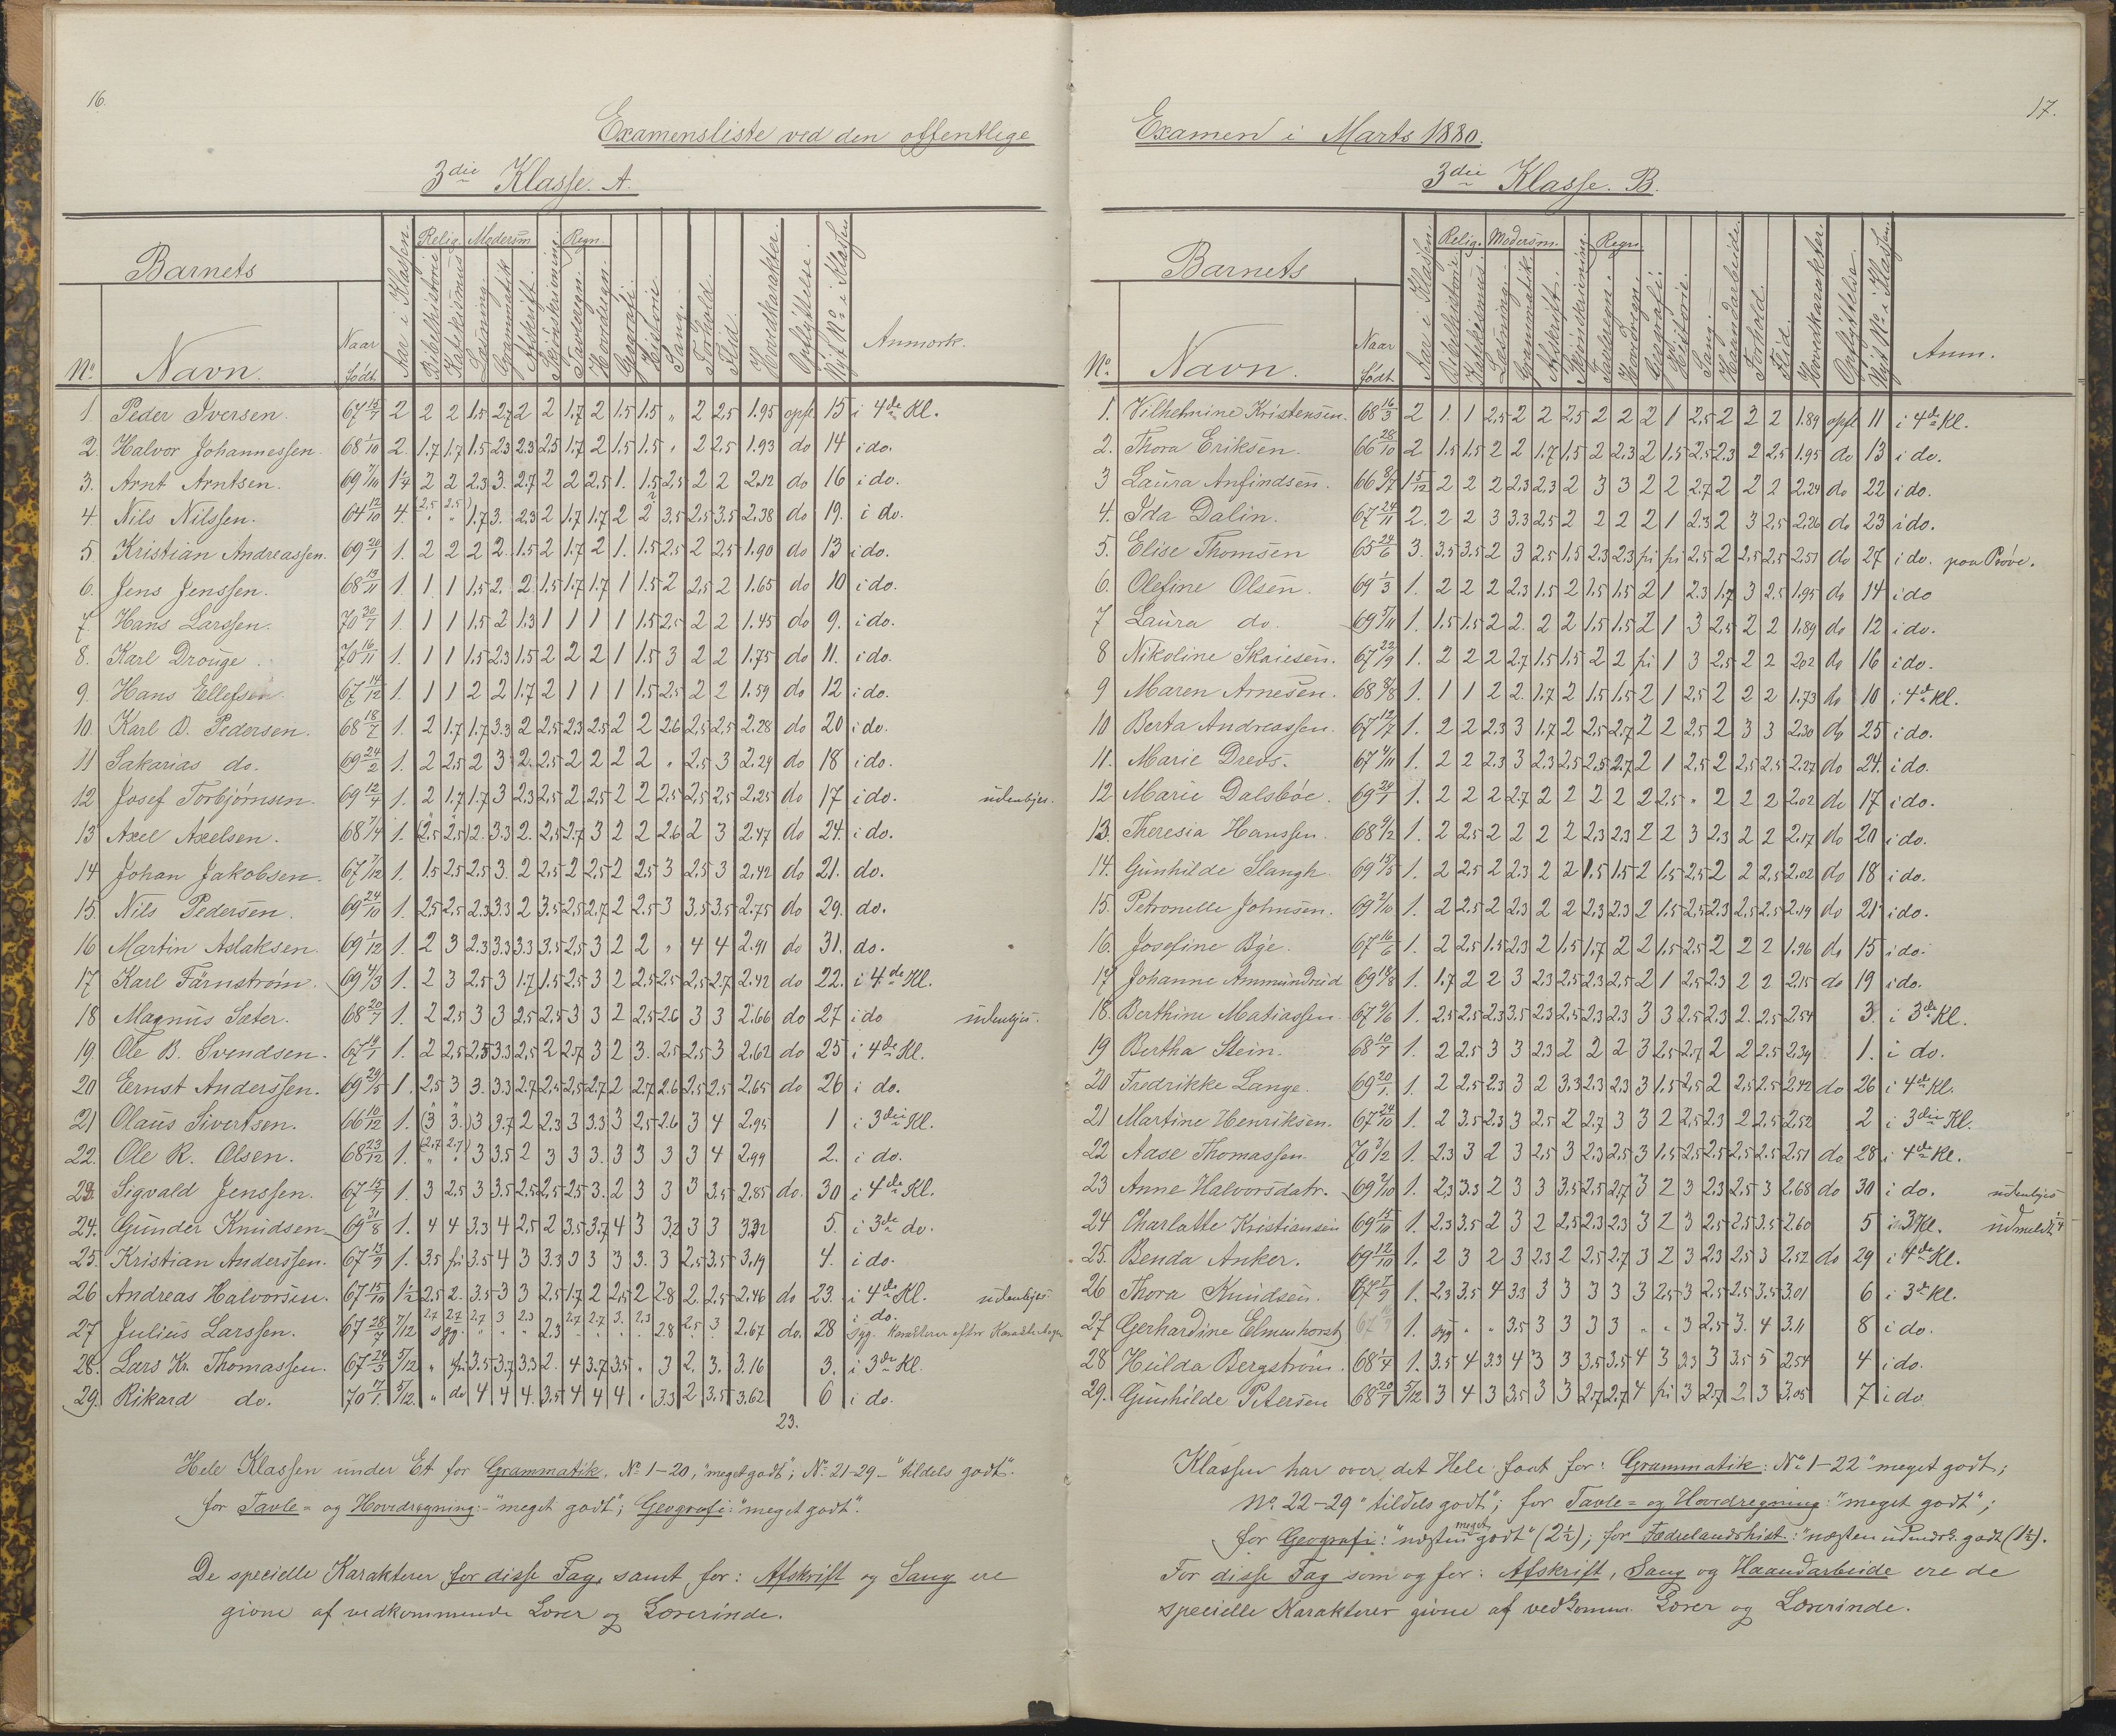 16.
Examensliste ved den offentlige
3die Klasse. A.
Barnets
Relig. Modersm. Regn.
No. Navn. Naar født. Aar i Klassen. Bibelhistorie Katekismus Læsning. Grammatik Afskrift. Skjönskrivning Tavleregn. Hovedregn. Geografi. Historie Sang. Forhold. Flid. Hovedkarakter. Opflyttelse. Nyt No. i Klassen Anmærk.
1. Peder Iversen. 67 15/7 2 2 2 1.5 2.7 2 2 1.7 2 1.5 1.5 " 2 2.5 1.95 opfl. 15 i 4de Kl.
2. Halvor Johannessen. 68 1/10 2. 1.7 1.7 1.5 2.3 2.3 2.5 1.7 2 1.5 1.5 " 2 2.5 1.93 do 14 i do.
3. Arnt Arntsen. 69 7/10 1 1/4 2 2 2.3 3. 2.7 2 2 2.5 1. 1.5 2.5 2 2 2.12 do 16 i do.
4 Nils Nilssen. 64 12/10 4. 2.5 2.5 1.7 3. 2.3 2 1.7 1.7 2 2 3.5 2.5 3.5 2.38 do 19. i do.
5. Kristian Andreassen. 69 20/1 1. 2 2 2 2. 1.5 2 1.7 2 1. 1.5 2.5 2 2.5 1.90 do 13 i do.
6. Jens Jenssen. 68 13/11 1. 1 1 1.5 2. 2 1.5 1.7 1.7 1 1.5 2 2.5 2 1.65 do 10 i do.
7. Hans Larssen. 70 30/7 1. 1 1 1.5 2 1.3 1 1 1 1 1.5 2.5 2 2 1.45 do 9. i do.
8. Karl Drouge. 70 16/11 1. 1 1 1.5 2.3 1.5 2 2 2 1 1.5 3 2 2 1.75 do 11. i do.
9. Hans Ellefsen 67 14/12 1. 1 1 2 2 1.7 2 1 1 1 1.5 2.5 2 2 1.59 do 12 i do.
10. Karl O. Pedersen. 68 18/7 1. 2 1.7 1.7 3.3 2 2.5 2.3 2.5 2 2 2.6 2.5 2.5 2.28 do 20 i do.
11 Sakarias do. 69 24/2 1. 2 2.5 2 3 2. 2.5 2 2 2 2 " 2.5 3 2.29 do 18 i do.
12 Josef Torbjørnsen. 69 12/4 1. 2 1.7 1.7 3 2.3 2.5 2 2.5 2 2 2.5 2.5 2.5 2.25 do 17 i do. udenbyes.
13 Axel Axelsen. 68 7/4 1. (2.5 2.5) 2. 3.3 2. 2.5 2.7 3 2 2 2.6 2 3 2.47 do 24. i do.
14 Johan Jakobsen. 67 7/12 1. 1.5 2.5 2.5 3. 2 2.5 2 2.5 2 2.5 3 2.5 3 2.42 do 21. do.
15. Nils Pedersen. 69 24/10 1. 2.5 2.5 2.3 3.3 2 3.5 2.5 2.7 2 2.5 3 3.5 3.5 2.75 do 29. do.
16 Martin Aslaksen. 69 1/12 1. 2 3 2.3 3.3 3.3 3.5 2.5 3 2 2 " 4 4 2.91 do 31. do.
17 Karl Färnström. 69 4/3 1. 2 3 2.5 3 1.7 1.5 2.5 3 2 2.5 2.5 2.5 2.7 2.42 do 22. i 4de Kl.
18 Magnus Sæter. 68 20/7 1. 2 2.5 3 3 2.5 2.5 3 3 2 2.5 2.6 3 3 2.66 do 27 i do udenbyes.
19. Ole B. Svendsen. 67 19/1 1. 2 2.5 2.5 3.3 2.5 2 2.7 3 2 3. 2.5 2.5 3 2.62 do 25 i 4de Kl.
20 Ernst Anderssen. 69 29/5 1. 2.5 3 3. 3.3 2.7 2.5 2.5 2.7 2 2.7 2.6 2.5 2.5 2.65 do 26 i do.
21 Olaus Sivertsen. 66 10/12 1. (3 3.) 3 3.7 2 2.3 3 3.3 3 2.5 2.6 3 4 2.95 1 i 3die Kl.
22. Ole R. Olsen. 68 23/12 1. (2.7 2.7) 3 3.5 2 3 3 3. 3 3 3 3 4 2.99 2. i do.
23. Sigvald Jenssen. 67 15/7 1. 3 2.5 3 3.5 2.5 2.5 2.5 3. 2 3 3 3 3.5 2.85 do. 30 i 4de Kl.
24. Gunder Knudsen 69 31/8 1. 4 4 3.3 4 2.5 2 3.5 3.7 4 3 3.2 3 3 3.32 5. i 3de do.
25. Kristian Anderssen. 67 13/9 1. 3.5 fri 3.5 4 3 3.3 3 3 3 3. 3 2.5 3.5 3.19 4. i do.
26 Andreas Halvorsen. 67 15/10 1 1/2 2.5 2. 3.5 3 3 2.5 1.7 2 2.5 2 2.8 2. 2.5 2.46 do 23. i 4de Kl. udenbyes
27 Julius Larssen. 67 28/7 7/12 syg. 2.7 2.7 2.7 3 2.3 2.3 2.7 2.7 3. 2.3 2.8 2.5 3 2.67 do. 28 i do. syg. Karakterer efter Karakterbogen
28. Lars Kr. Thomassen. 67 29/3 5/12 " fri 3.5 3.7 3.3 2. 4 3.7 3.5 " 3 2. 3. 3.16 3. i 3de Kl.
29. Rikard do. 70 17/1 5/12. " do 4 4 4. 3.5 4 4 4 " 3.3 2 3.5 3.62 6 i do.
23.
Hele Klassen under Et for Grammatik. No. 1-20, "meget godt"; No. 21-29 - "tildels godt".
for Tavle- og Hovedregning: - "meget godt"; Geografi: "meget godt".
De specielle Karakterer for disse Fag, samt for: Afskrift og Sang ere
givne af vedkommende Lærer og Lærerinde.
17.
Examen i Marts 1880.
3die Klasse. B.
Barnets
Relig. Modersm. Regn.
No. Navn. Naar født Aar i Klassen Bibelhistorie Katekismus Læsning. Grammatik Afskrift. Skjönskrivning. Tavleregn. Hovedregn. Geografi. Historie. Sang. Haandarbeide Forhold. Flid. Hovedkarakter. Opflyttelse. Nyt No. i Klassen. Anm.
1. Vilhelmine Kristensen. 68 16/3 2 1. 1 2.5 2 2 2.5 2 2 2 1 2.5 2 2 2 1.89 opfl 11 i 4de Kl.
2. Thora Eriksen. 66 28/10 2 1.5 1.5 2 2 1.7 1.5 2 2.3 2 1.5 2.5 2.3 2 2.5 1.95 do 13 i do.
3 Laura Anfindsen. 66 8/7 1 5/12 2 2 2 2.3 2.3 2 3 3 2 2 2.7 2 2 2 2.24 do 22 i do.
4. Ida Dalin. 67 24/11 2. 2 2 3 3.3 2.5 2 2 2 2 1 2.3 2 3 2.5 2.26 do 23 i do.
5. Elise Thomsen 65 24/6 3. 3.5 3.5 2 3 2.5 1.5 2.3 2.3 fri fri 2.5 2 2.5 2.5 2.51 do 27 i do. paa Prøve.
6. Olefine Olsen. 69 1/3 1. 2 2 2 2.3 1.5 2 1.5 1.5 2 1 2.3 1.7 3 2.5 1.95 do 14 i do
7 Laura do. 69 5/11 1. 1.5 1.5 2 2. 2 2 1.5 1.5 2 1 3 2.5 2 2 1.89 do 12 i do.
8 Nikoline Skaiesen. 67 22/9 1. 2 2 2 2.7 1.5 1.5 2 2 fri 1 3 2.5 2 2 2.02 do 16 i do.
9 Maren Arnesen. 68 8/8 1. 1 1 2 2. 1.7 2 1.5 1.5 2 1 2.5 2 2 2 1.73 do 10 i 4de Kl.
10 Berta Andreassen. 67 12/7 1. 2 2 2.3 3 1.7 2 2.5 2.7 2 2 2.5 2 3 3 2.30 do 25 i do.
11. Marie Drevs. 67 9/11 1. 2 2 2.3 3 2.3 2.5 2.5 2.7 2 1 2.5 2 2.5 2.5 2.27 do 24. i do.
12 Marie Dalsböe. 69 24/1 1. 2 2 2 2.7 2 2 2 2 2 2.5 " 2 2 2 2.02 do 17 i do.
13. Theresia Hanssen. 68 9/12 1. 2 2.5 2 2 2 2 2.3 2.3 2 2 3 2.3 2 2 2.17 do 20 i do.
14. Gunhilde Slangh. 69 13/5 1. 2 2.5 2 2.3 2 2 1.5 1.5 2 1.5 2.5 2 2 2.5 2.02 do 18 i do.
15. Petronelle Johnsen. 69 2/10 1. 2 2.5 2 2.3 2 2 2.3 2.3 2 1.5 2.5 2.3 2.5 2.5 2.19 do 21 i do.
16. Josefine Bye. 67 16/6 1. 2 2.5 1.5 2.3 2 1.5 1.7 2 2 1.5 2.5 2 2 2 1.96 do 15 i do.
17 Johanne Ammundrød 69 18/8 1. 1.7 2 2 3 2.3 2.5 2.3 2.5 2 1 2.5 2.3 2 2 2.15 do 19 i do.
18. Berthine Matiassen. 67 9/6 1. 2.5 2.5 2.3 3.5 2.3 2.5 2.3 2.3 3 3 2.5 2.3 2. 2.5 2.54 3. i 3de Kl.
19 Bertha Stein. 68 10/7 1. 2 2.5 3 3 2.3 2 2 2 3 2.5 2.7 2 2 2.5 2.39 1. i do.
20 Fredrikke Lange. 69 20/1 1. 2 2.5 2.3 3 2 3.3 2.3 2.3 3 1.5 2.5 2 2.5 2.5 2.42 do 26 i 4de Kl.
21 Martine Henriksen. 67 24/10 1. 2 3.5 2.3 3 2.5 2 2.7 3 3 2 2.5 2.3 2 2.5 2.52 2 i 3die Kl.
22 Aase Thomassen. 70 3/12 1. 2.3 3 2 3 2.5 3 2.3 2.5 3 1.5 2.5 2.5 2.5 2.5 2.51 do 28 i 4de Kl.
23 Anne Halvorsdatr. 69 2/10 1. 2.3 3.3 2 3 3 3.5 2.5 2.7 3 2 3 2.3 2.5 3 2.68 do 30 i do. udenbyes
24 Charlotte Kristiansen 69 15/10 1. 2.3 3.5 2 3 2 2.5 2.3 2.3 3 2 3 2.5 2.5 3.5 2.60 5 i 3 Kl. udmeldt 1/4
25. Benda Anker. 69 12/10 1. 2 3 2 3 2.3 2 2.5 2.7 3 2 3 2.3 2.5 3 2.52 do 29 i 4de Kl.
26 Thora Knudsen. 67 7/9 1. 2.3 3.5 4 3.3 3 3 3 3 3 2.5 3 2.5 2.5 3.5 3.01 6 i 3de Kl.
27 Gerhardine Elmenhorst 1. syg " " 3.5 3 3 3 3 " " 3 2.5 3. 4 3.11 8 i do.
28 Hulda Bergström. 68 1/4 1. 3.5 4 3.3 4 3 3 3.5 3.5 4 3 3.3 3 3.5 5 2.54 4 i do.
29. Gunhilde Petersen 68 20/7 5/12 3 4 3 3.5 3 3 2.7 2.7 4 fri 3 2.7 2. 3 3.05 7 i do
Klassen har over det Hele faaet for: Grammatik: No. 1-22 "meget godt;
No. 22-29 "tildels godt"; for Tavle- og Hovedregning: "meget godt";
for Geografi: "næsten meget godt" (2 1/2); for Fædrelandshist.: "næsten udmærk. godt (1 1/2).
For disse Fag som og for: Afskrift, Sang og Haandarbeide ere de
specielle Karakterer givne af vedkomm. Lærer og Lærerinde.